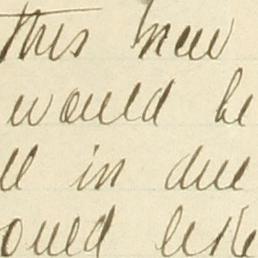 this new
would be
ll in due
ould like